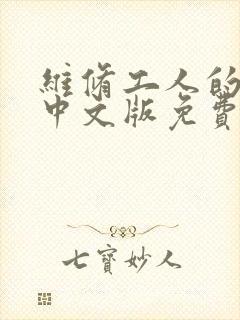 維脩工人的
中文版免費
七寶妙人